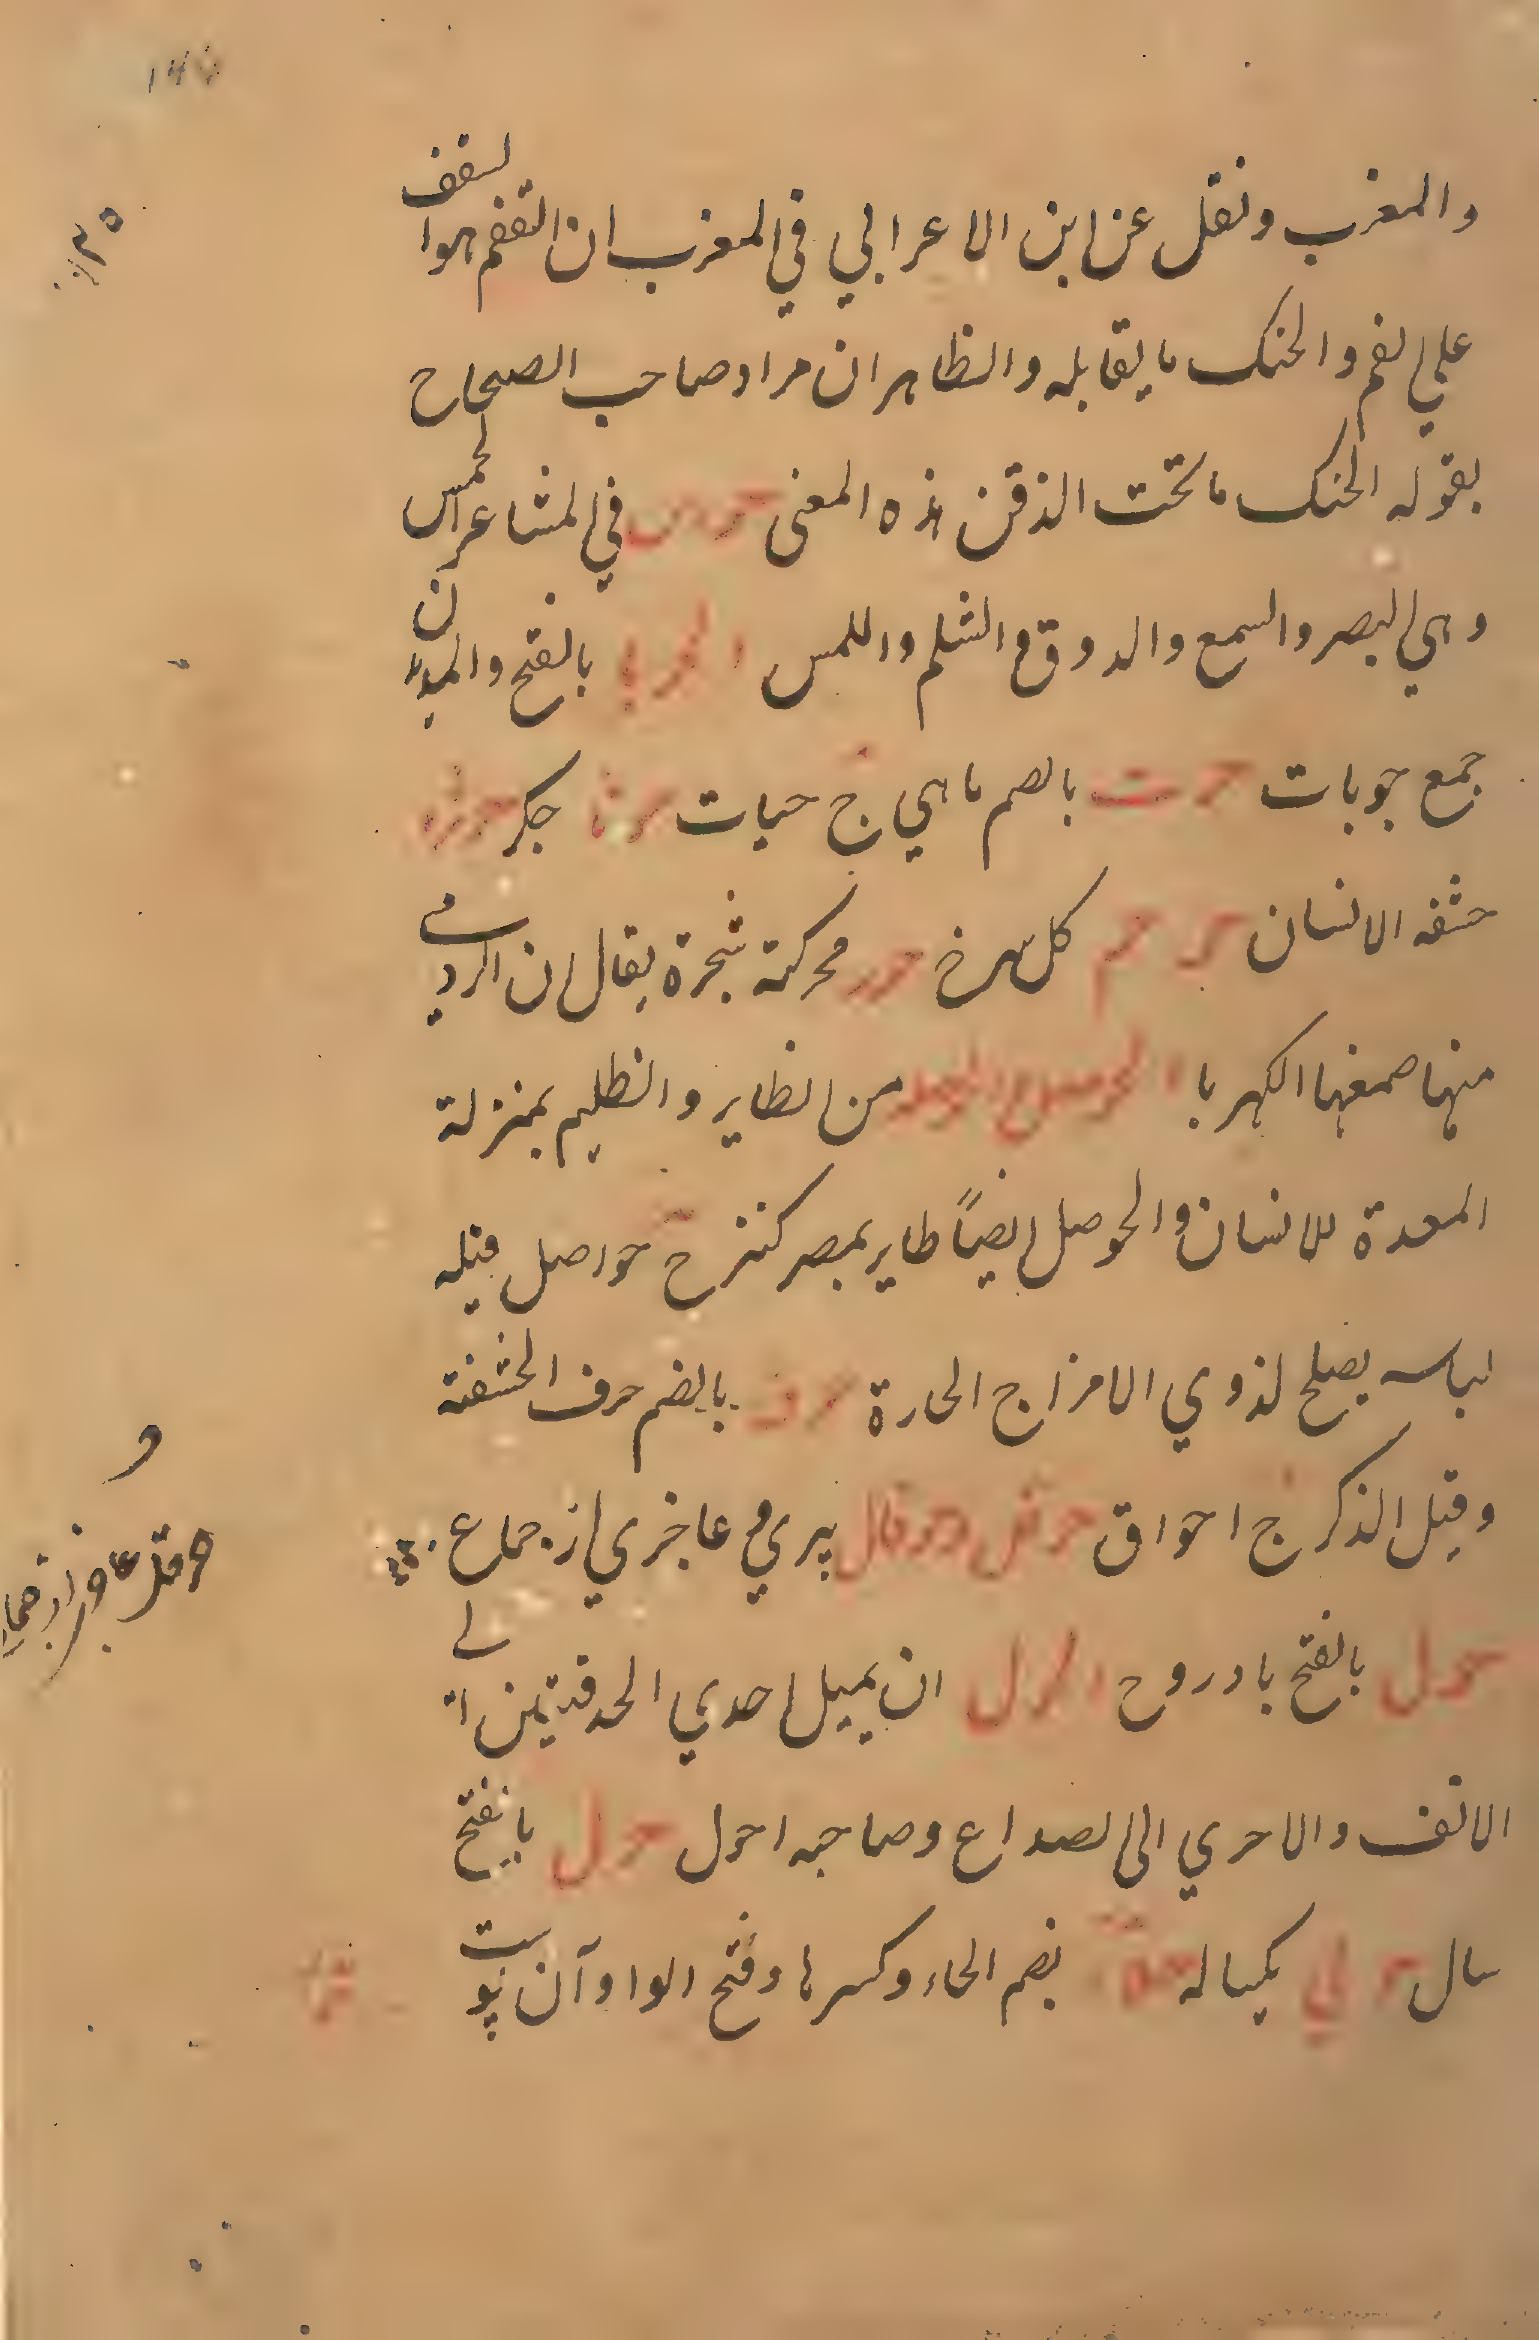 والمغرب ونقل عن ابن الاعرابي في المغرب ان الفقم هوا لسقف
علي الفم والحنك ما يقابله والظاهر ان مراد صاحب الصحاح
بقوله الحنك ما تحت الذقن هذه المعني حواس في المشاعر الخمس
وهي البصر والسمع والدوق والشلم واللمس بالفتح والمد
جمع جوبات حوت بالصم ماهي ج حيات جكر
حشفه الانسان كل سرخ حور محركة شجرة يقال ان الردي
منها صمغها الكهربا من الطاير والظليم بمنزلة
المعدة للانسان والحوصل ايضاً طاير بمصر كثيرج حواصل قيله
لباسه يصلح لذوي الامزاج الحارة حوق بالضم حرف الحشفة
وقيل الذكر ج احواق حوقل وحوقال پيري و عاجزي از جماع
حول بالفتح بادروج الحول ان يميل احدي الحدقتين الي
الانف والاحري الى الصداع وصاحبه احول حول بالفتح
سال حولي يكساله بضم الحاء وكسرها وفتح الواو آن پوست
حوقل عاجز از جماع